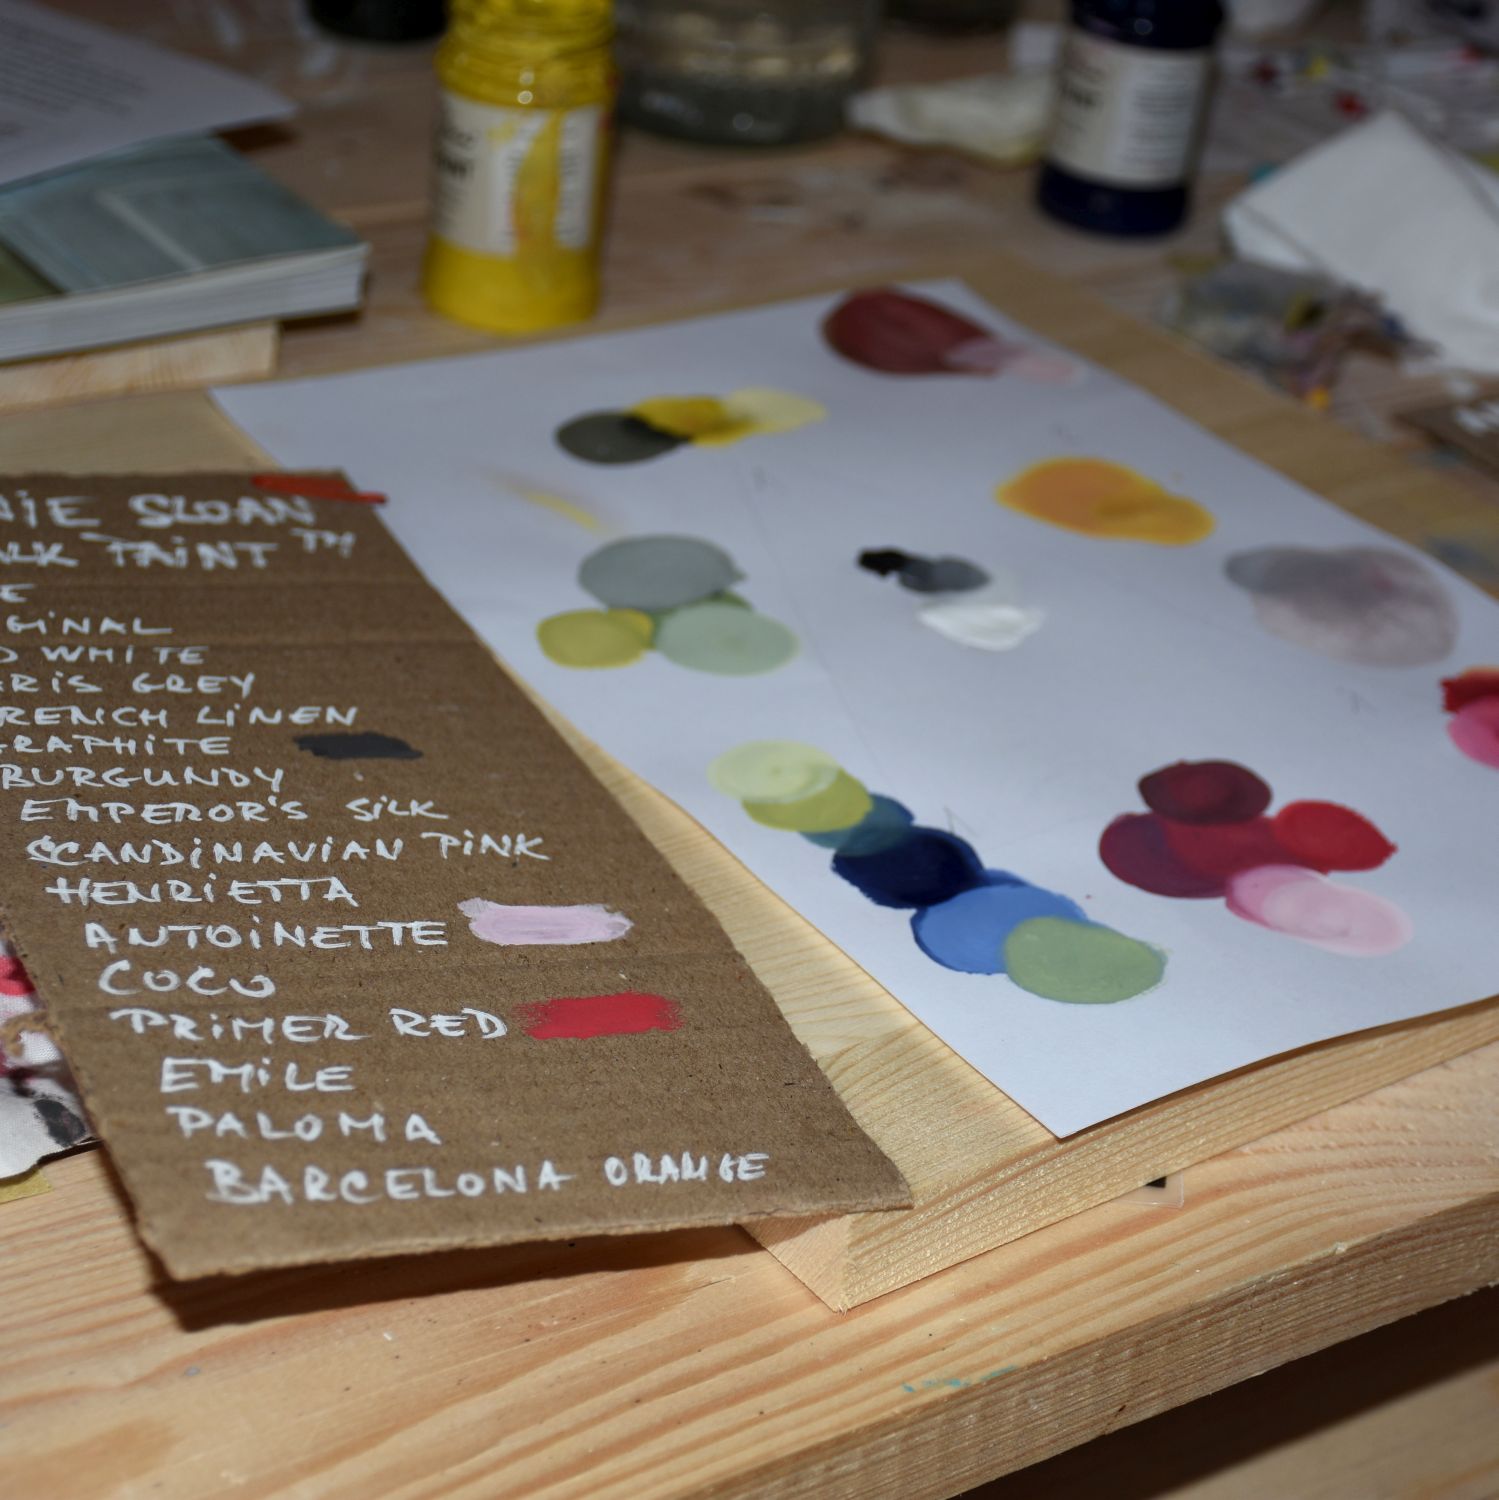 NIE SLOAN
ALK PAINT™
E
GINAL
D WHITE
RIS GREY
RENCH LINEN
GRAPHITE
BURGUNDY
EMPEROR'S SILK
SCANDINAVIAN PINK
HENRIETTA
ANTOINETTE
COCO
PRIMER RED
EMILE
PALOMA
BARCELONA ORANGE